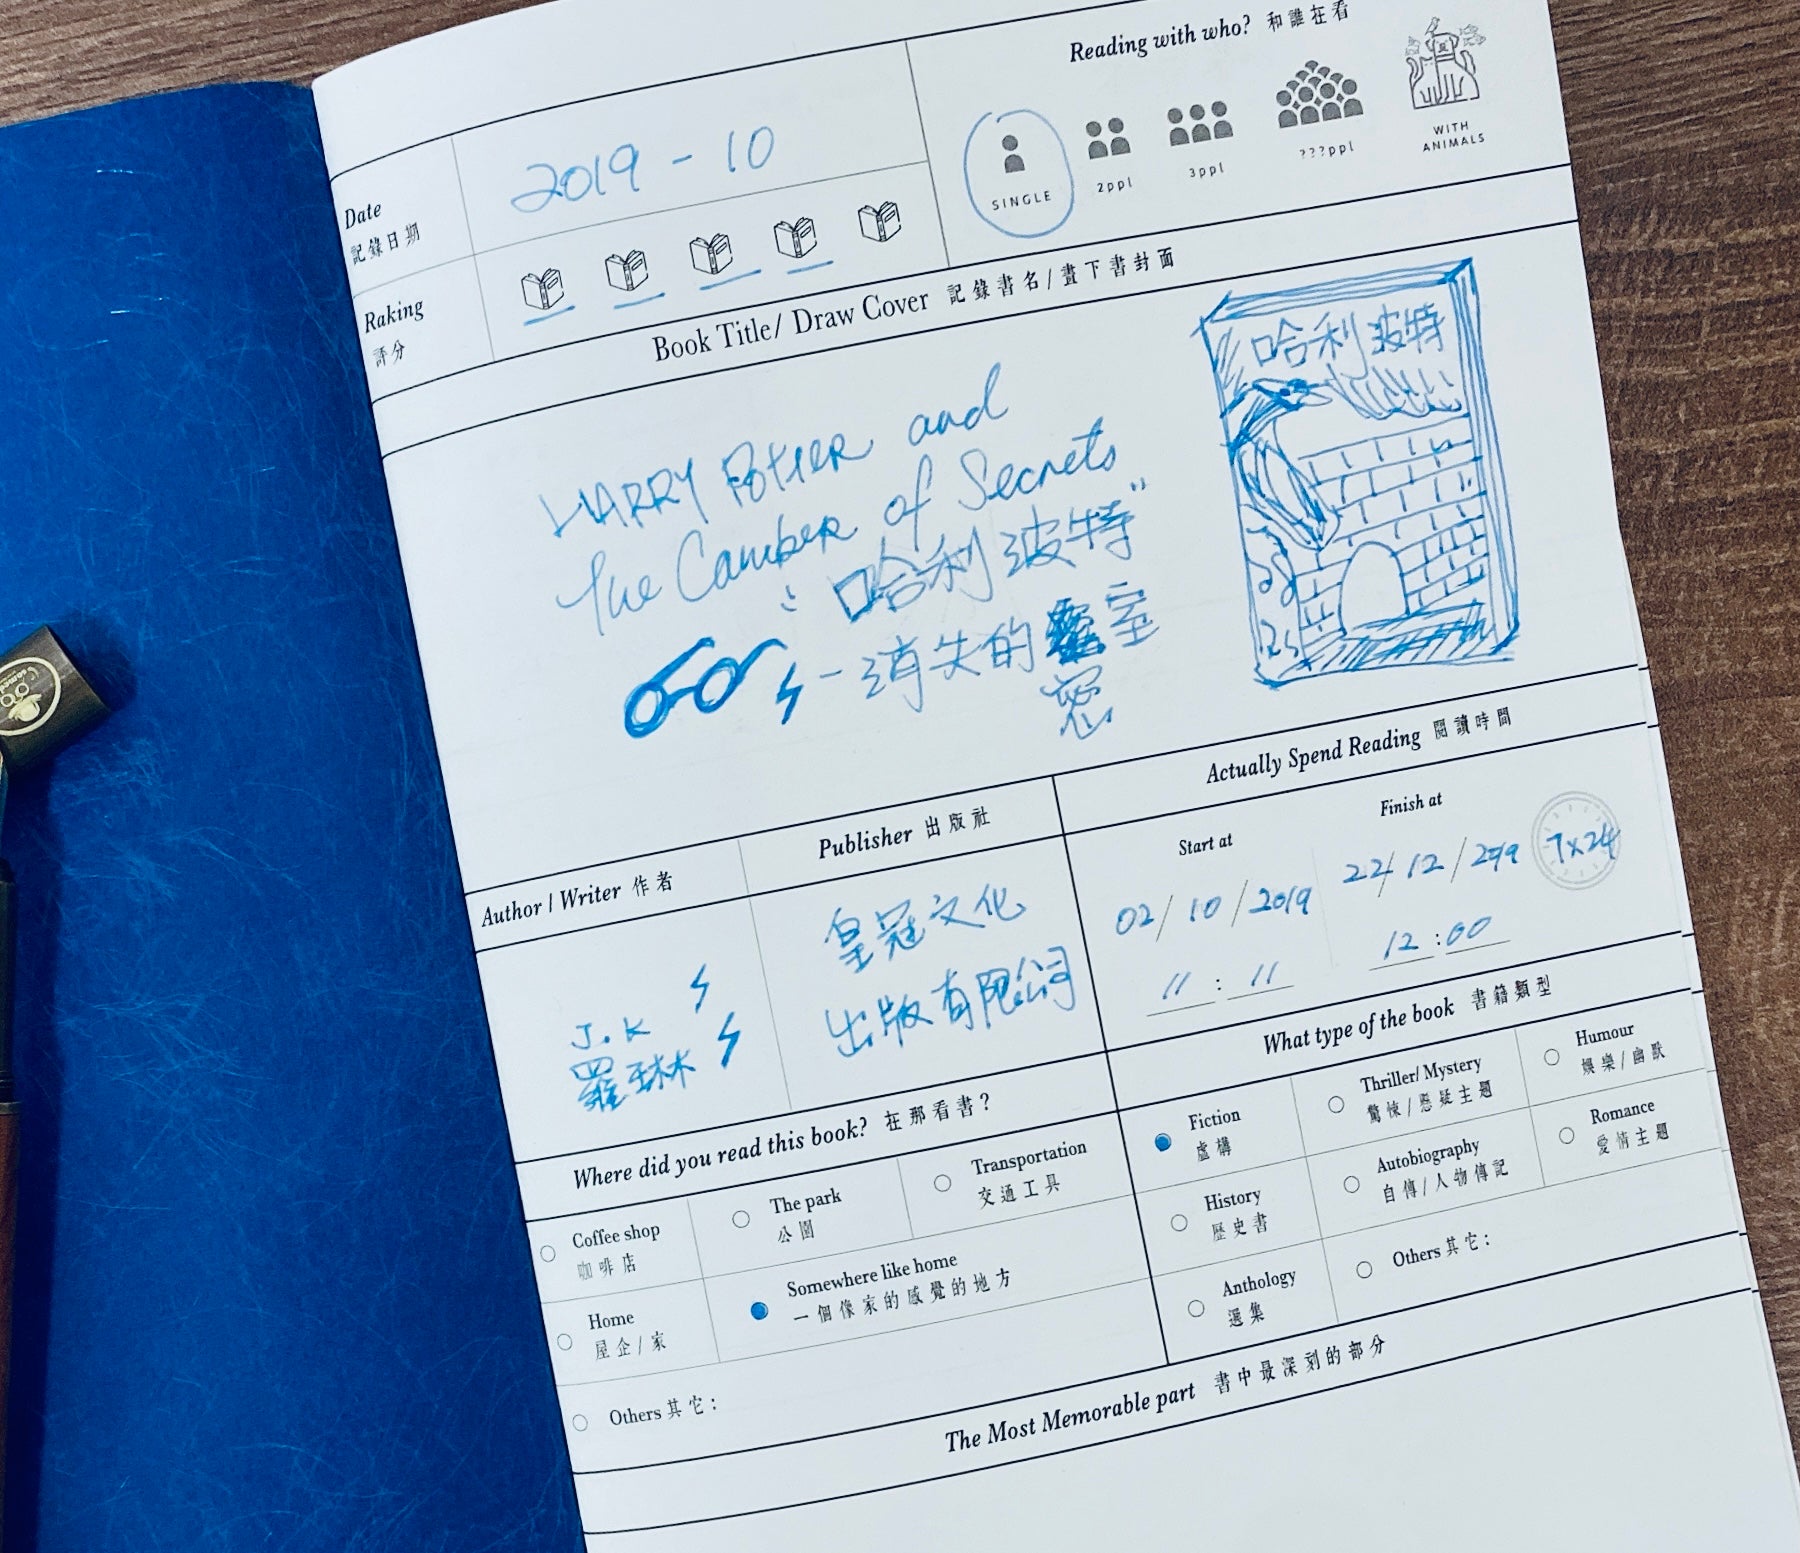 Reading with who? 和誰在看
Date
記錄日期
2019 - 10
SINGLE
2ppl
3ppl
???ppl
WITH
ANIMALS
Raking
評分
Book Title/ Draw Cover 記錄書名/畫下書封面
HARRY Potter and
the Camber of Secrets
"哈利波特"
-消失的 室
密
哈利波特
Author / Writer 作者
Publisher 出版社
Actually Spend Reading 閱讀時間
J.K
羅琳
皇冠文化
出版有限公司
Start at
Finish at
02/10/2019
22/12/2019
7x24
11:11
12:00
Where did you read this book? 在那看書?
Coffee shop
咖啡店
The park
公園
Transportation
交通工具
Home
屋企/家
Somewhere like home
一個像家的感覺的地方
Others 其它:
What type of the book 書籍類型
Fiction
虛構
Thriller/ Mystery
驚悚/懸疑主題
Humour
娛樂/幽默
History
歷史書
Autobiography
自傳/人物傳記
Romance
愛情主題
Anthology
選集
Others 其它:
The Most Memorable part 書中最深刻的部分